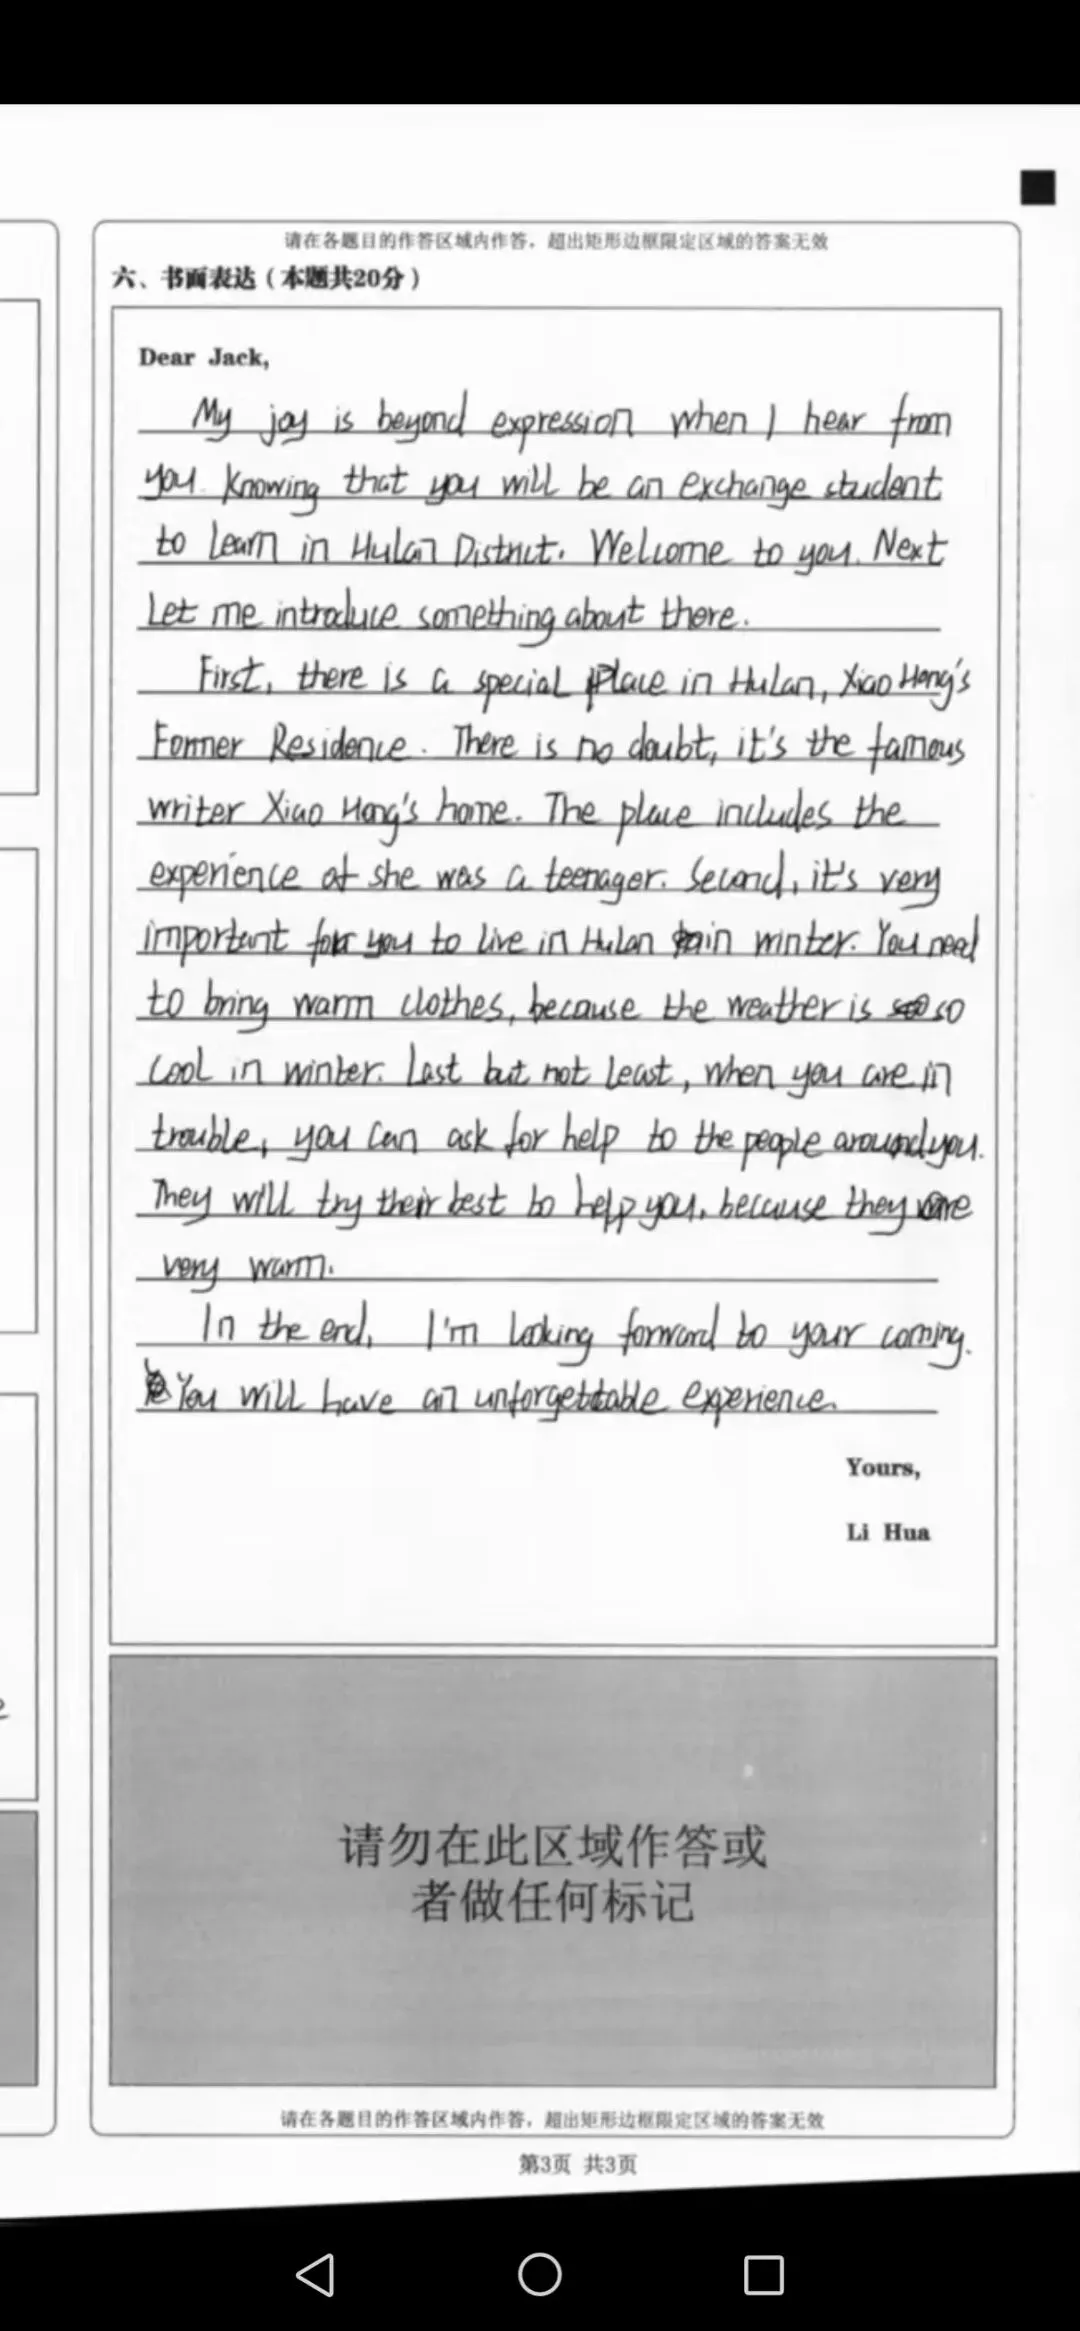 请在各题目的作答区域内作答，超出矩形边框限定区域的答案无效
六、书面表达（本题共20分）
Dear Jack,
My joy is beyond expression when I hear from
you. Knowing that you will be an exchange student
to learn in Hulan District. Welcome to you. Next
Let me introduce something about there.
First, there is a special place in Hulan, Xiao Hong's
Former Residence. There is no doubt, it's the famous
writer Xiao Hong's home. The place includes the
experience of she was a teenager. Second, it's very
important for you to live in Hulan in winter. You need
to bring warm clothes, because the weather is so
cool in winter. Last but not least, when you are in
trouble, you can ask for help to the people around you.
They will try their best to help you, because they are
very warm.
In the end, I'm looking forward to your coming.
You will have an unforgettable experience.
Yours,
Li Hua
请勿在此区域作答或
者做任何标记
请在各题目的作答区域内作答，超出矩形边框限定区域的答案无效
第3页 共3页